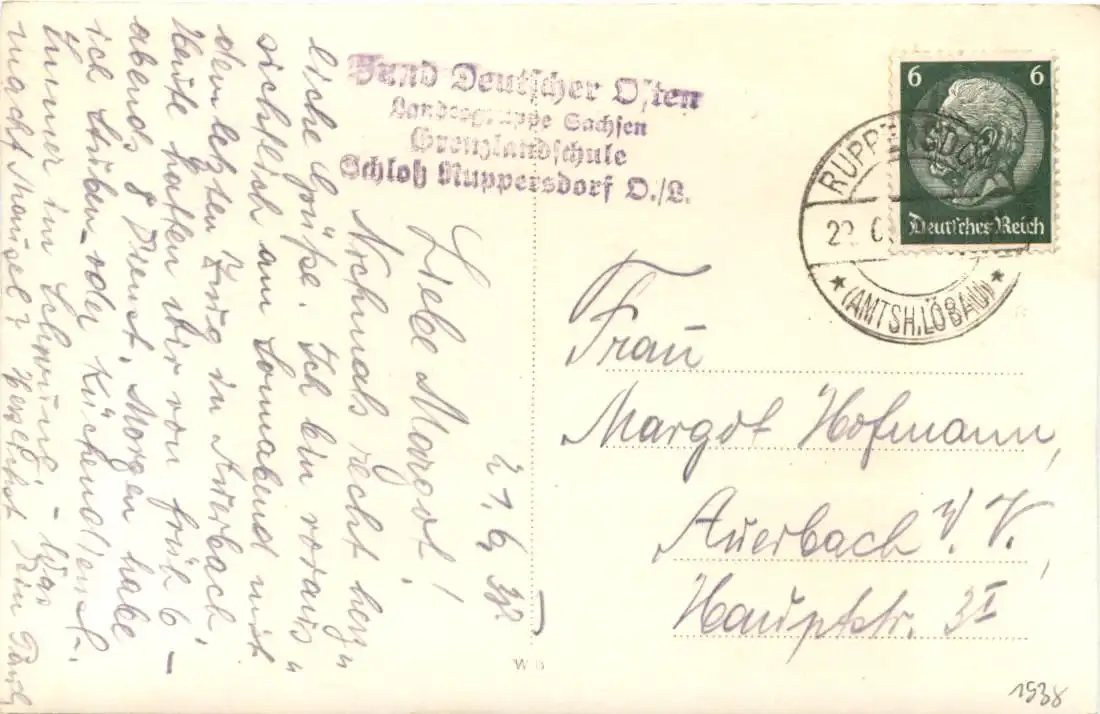 Bund Deutscher Osten
Landesgruppe Sachsen
Grenzlandschule
Schloß Ruppersdorf O./L.
6 6
Deutsches Reich
RUPPERSDORF
22
★ (AMTSH. LÖBAU) ★
21. 6. 38
Liebe Margot!
Nochmals recht herz„
liche Grüße. Ich bin voraus„
sichtlich am Sonnabend mit
dem letzten Zug in Auerbach.
Heute hatten wir von früh 6 –
abends 8 Dienst. Morgen habe
ich Stuben- oder Küchendienst.
Immer im Schwung. – Was
macht Mausel? Herzlichst Dein
Frau
Margot Hofmann,
Auerbach i. V.,
Hauptstr. 3I
W B
1938